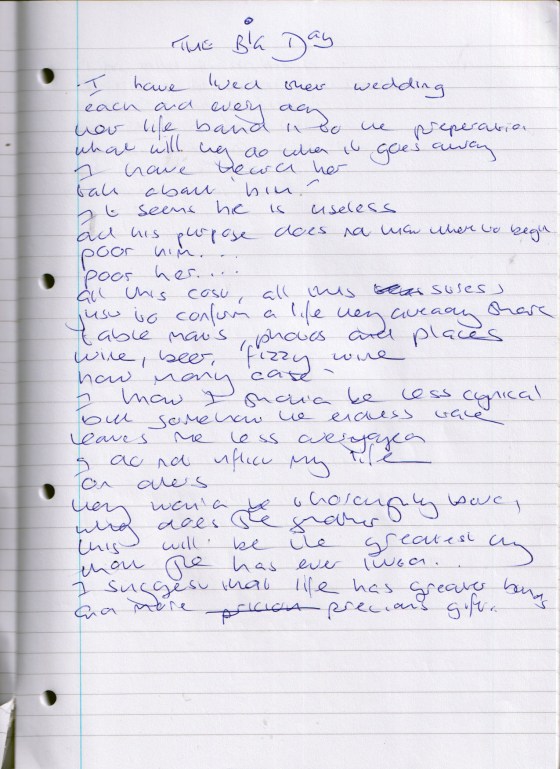 THE BIG Day
I have lived their wedding
each and every day
her life bound in to the preparation
what will they do when it goes away
I have heard her
talk about him
It seems he is useless
and his purpose does not know where to begin
poor him...
poor her....
all this cost, all this stress
just to confirm a life they already share
table mats, photos and places
wine, beer, fizzy wine
how many case
I know I should be less cynical
but somehow the endless
leaves me less
I do not inflict my life
on others
they would be thoroughly bored,
why does she
this will be the greatest
than she has ever lived...
I suggest that life has greater
and more precious gifts.